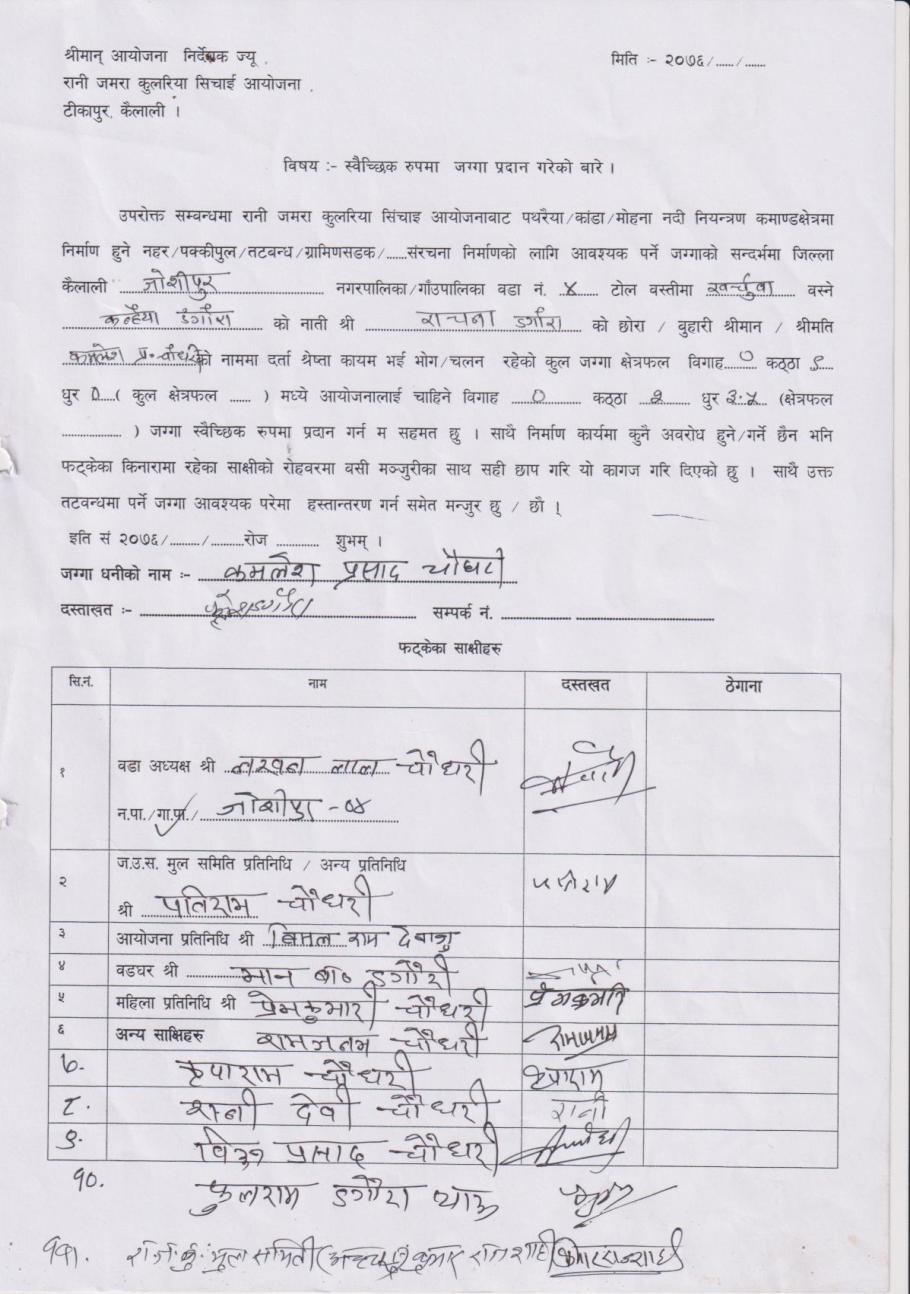 श्रीमान् आयोजना निर्देशक ज्यू ,
मिति :- २०७६/....../.......
रानी जमरा कुलरिया सिचाई आयोजना ,
टीकापुर, कैलाली ।
विषय :- स्वैच्छिक रुपमा जग्गा प्रदान गरेको बारे ।
उपरोक्त सम्वन्धमा रानी जमरा कुलरिया सिंचाइ आयोजनाबाट पथरैया/कांडा/मोहना नदी नियन्त्रण कमाण्डक्षेत्रमा
निर्माण हुने नहर/पक्कीपुल/तटबन्ध/ग्रामिणसडक/......संरचना निर्माणको लागि आवश्यक पर्ने जग्गाको सन्दर्भमा जिल्ला
कैलाली जोशीपुर नगरपालिका/गाँउपालिका वडा नं. ४ टोल वस्तीमा वस्ने
कन्हैया डगौरा को नाती श्री राचना डगौरा को छोरा / वुहारी श्रीमान / श्रीमति
कमलेश प्र. चौधरी को नाममा दर्ता श्रेष्ता कायम भई भोग/चलन रहेको कुल जग्गा क्षेत्रफल विगाह ० कठ्ठा ९
धुर ०...( कुल क्षेत्रफल ...... ) मध्ये आयोजनालाई चाहिने विगाह ० कठ्ठा २ धुर (क्षेत्रफल
.................. ) जग्गा स्वैच्छिक रुपमा प्रदान गर्न म सहमत छु । साथै निर्माण कार्यमा कुनै अवरोध हुने/गर्ने छैन भनि
फट्केका किनारामा रहेका साक्षीको रोहवरमा वसी मञ्जुरीका साथ सही छाप गरि यो कागज गरि दिएको छु । साथै उक्त
तटवन्धमा पर्ने जग्गा आवश्यक परेमा हस्तान्तरण गर्न समेत मन्जुर छु / छौ ।
इति सं २०७६/........./.........रोज ............ शुभम् ।
जग्गा धनीको नाम :- कमलेश प्रसाद चौधरी
दस्ताखत :- सम्पर्क नं. ....................
फट्केका साक्षीहरु
सि.नं. नाम दस्तखत ठेगाना
१ वडा अध्यक्ष श्री लखन लाल चौधरी
न.पा./गा.पा./ जोशीपुर -०४
२ ज.उ.स. मुल समिति प्रतिनिधि / अन्य प्रतिनिधि
श्री पतिराम चौधरी पतिराम
३ आयोजना प्रतिनिधि श्री विमल राम देवाजु
४ वडघर श्री मान ब० डगौरा
५ महिला प्रतिनिधि श्री प्रेमकुमारी चौधरी
६ अन्य साक्षिहरु रामजनम चौधरी रामजनम
७. कृपाराम चौधरी कृपाराम
८. रानी देवी चौधरी रानी
९. प्रसाद चौधरी
१०. फुलराम डगौरा थारू
११. रा.ज.कु. मुल समिती कुमार राजशाही